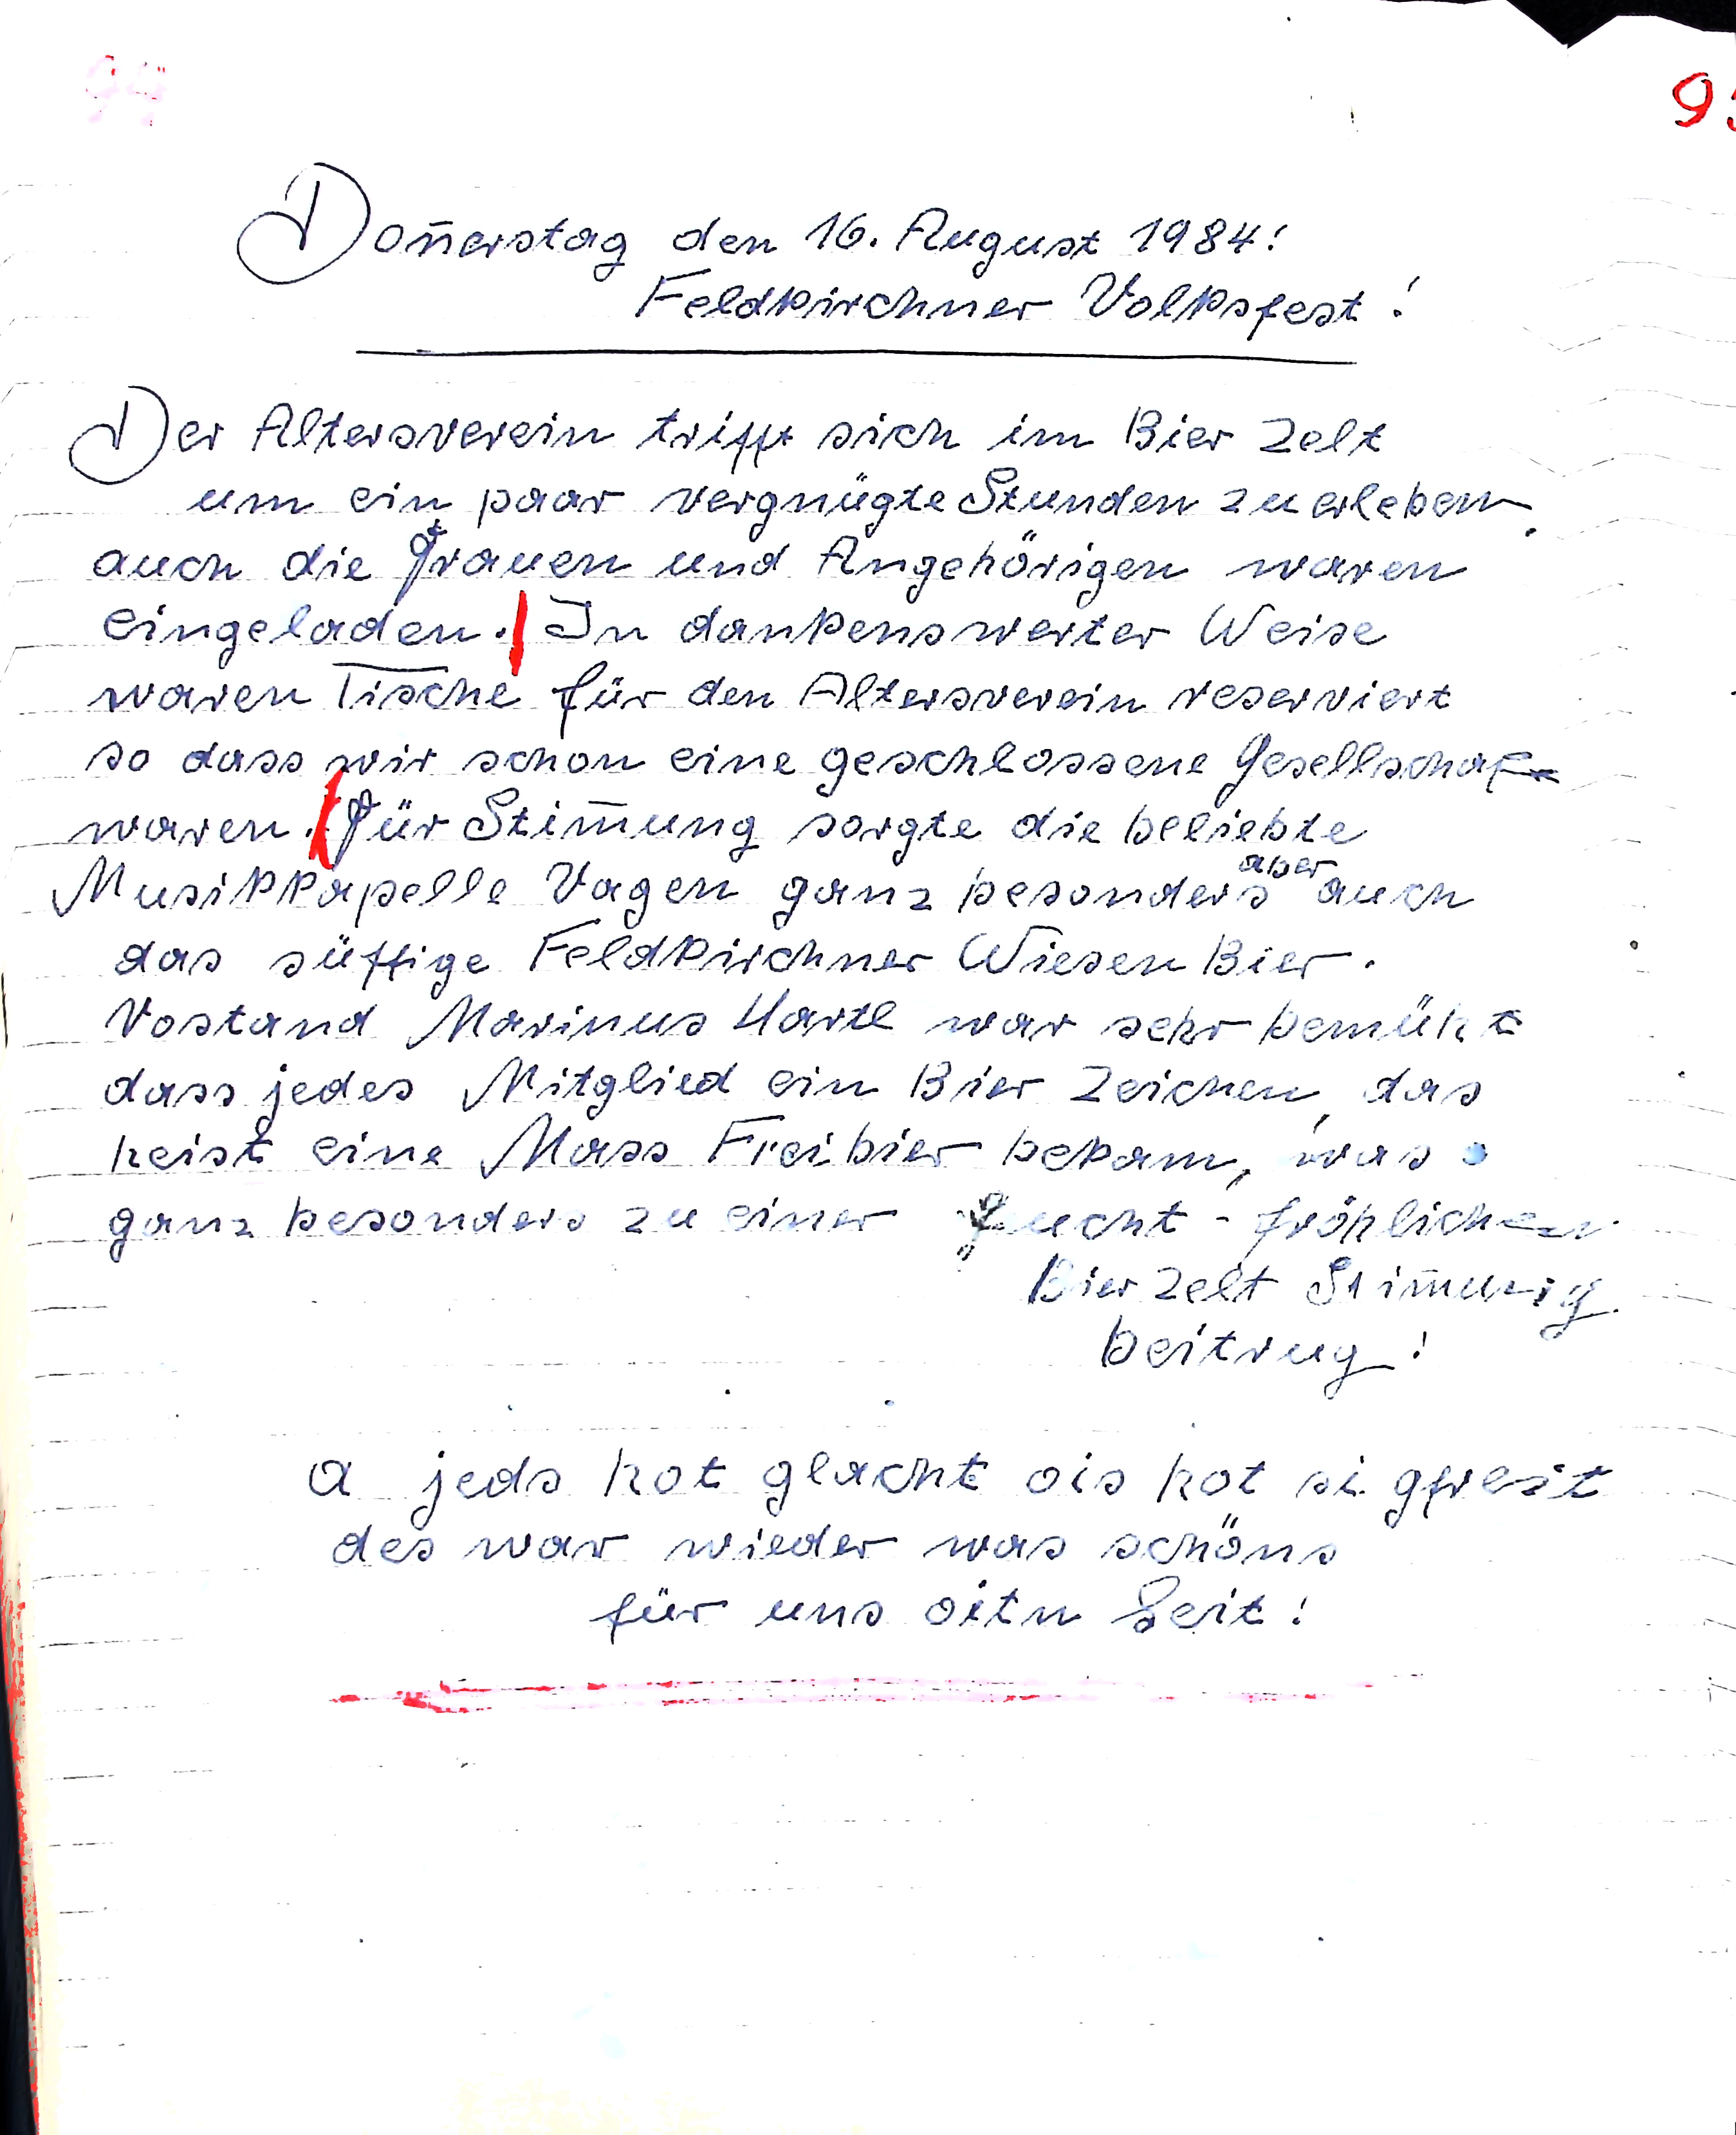 Don̄erstag den 16. August 1984!
Feldkirchner Volksfest!
Der Altersverein trifft sich im Bier Zelt
um ein paar vergnügte Stunden zu erleben.
auch die Frauen und Angehörigen waren
eingeladen. In dankenswerter Weise
waren Tische für den Altersverein reserviert
so dass wir schon eine geschlossene Gesellschaft
waren. Für Stim̄ung sorgte die beliebte
Musikkapelle Vagen ganz besonders aber auch
das süffige Feldkirchner Wiesen Bier.
Vostand Marinus Hartl war sehr bemüht
dass jedes Mitglied ein Bier Zeichen, das
heist eine Mass Freibier bekam, was
ganz besonders zu einer „feucht - fröhlichen
Bier Zelt Stim̄ung
beitrug!
a jeds hot glacht ois hot si gfreit
des war wieder was schöns
für uns oitn Leit!